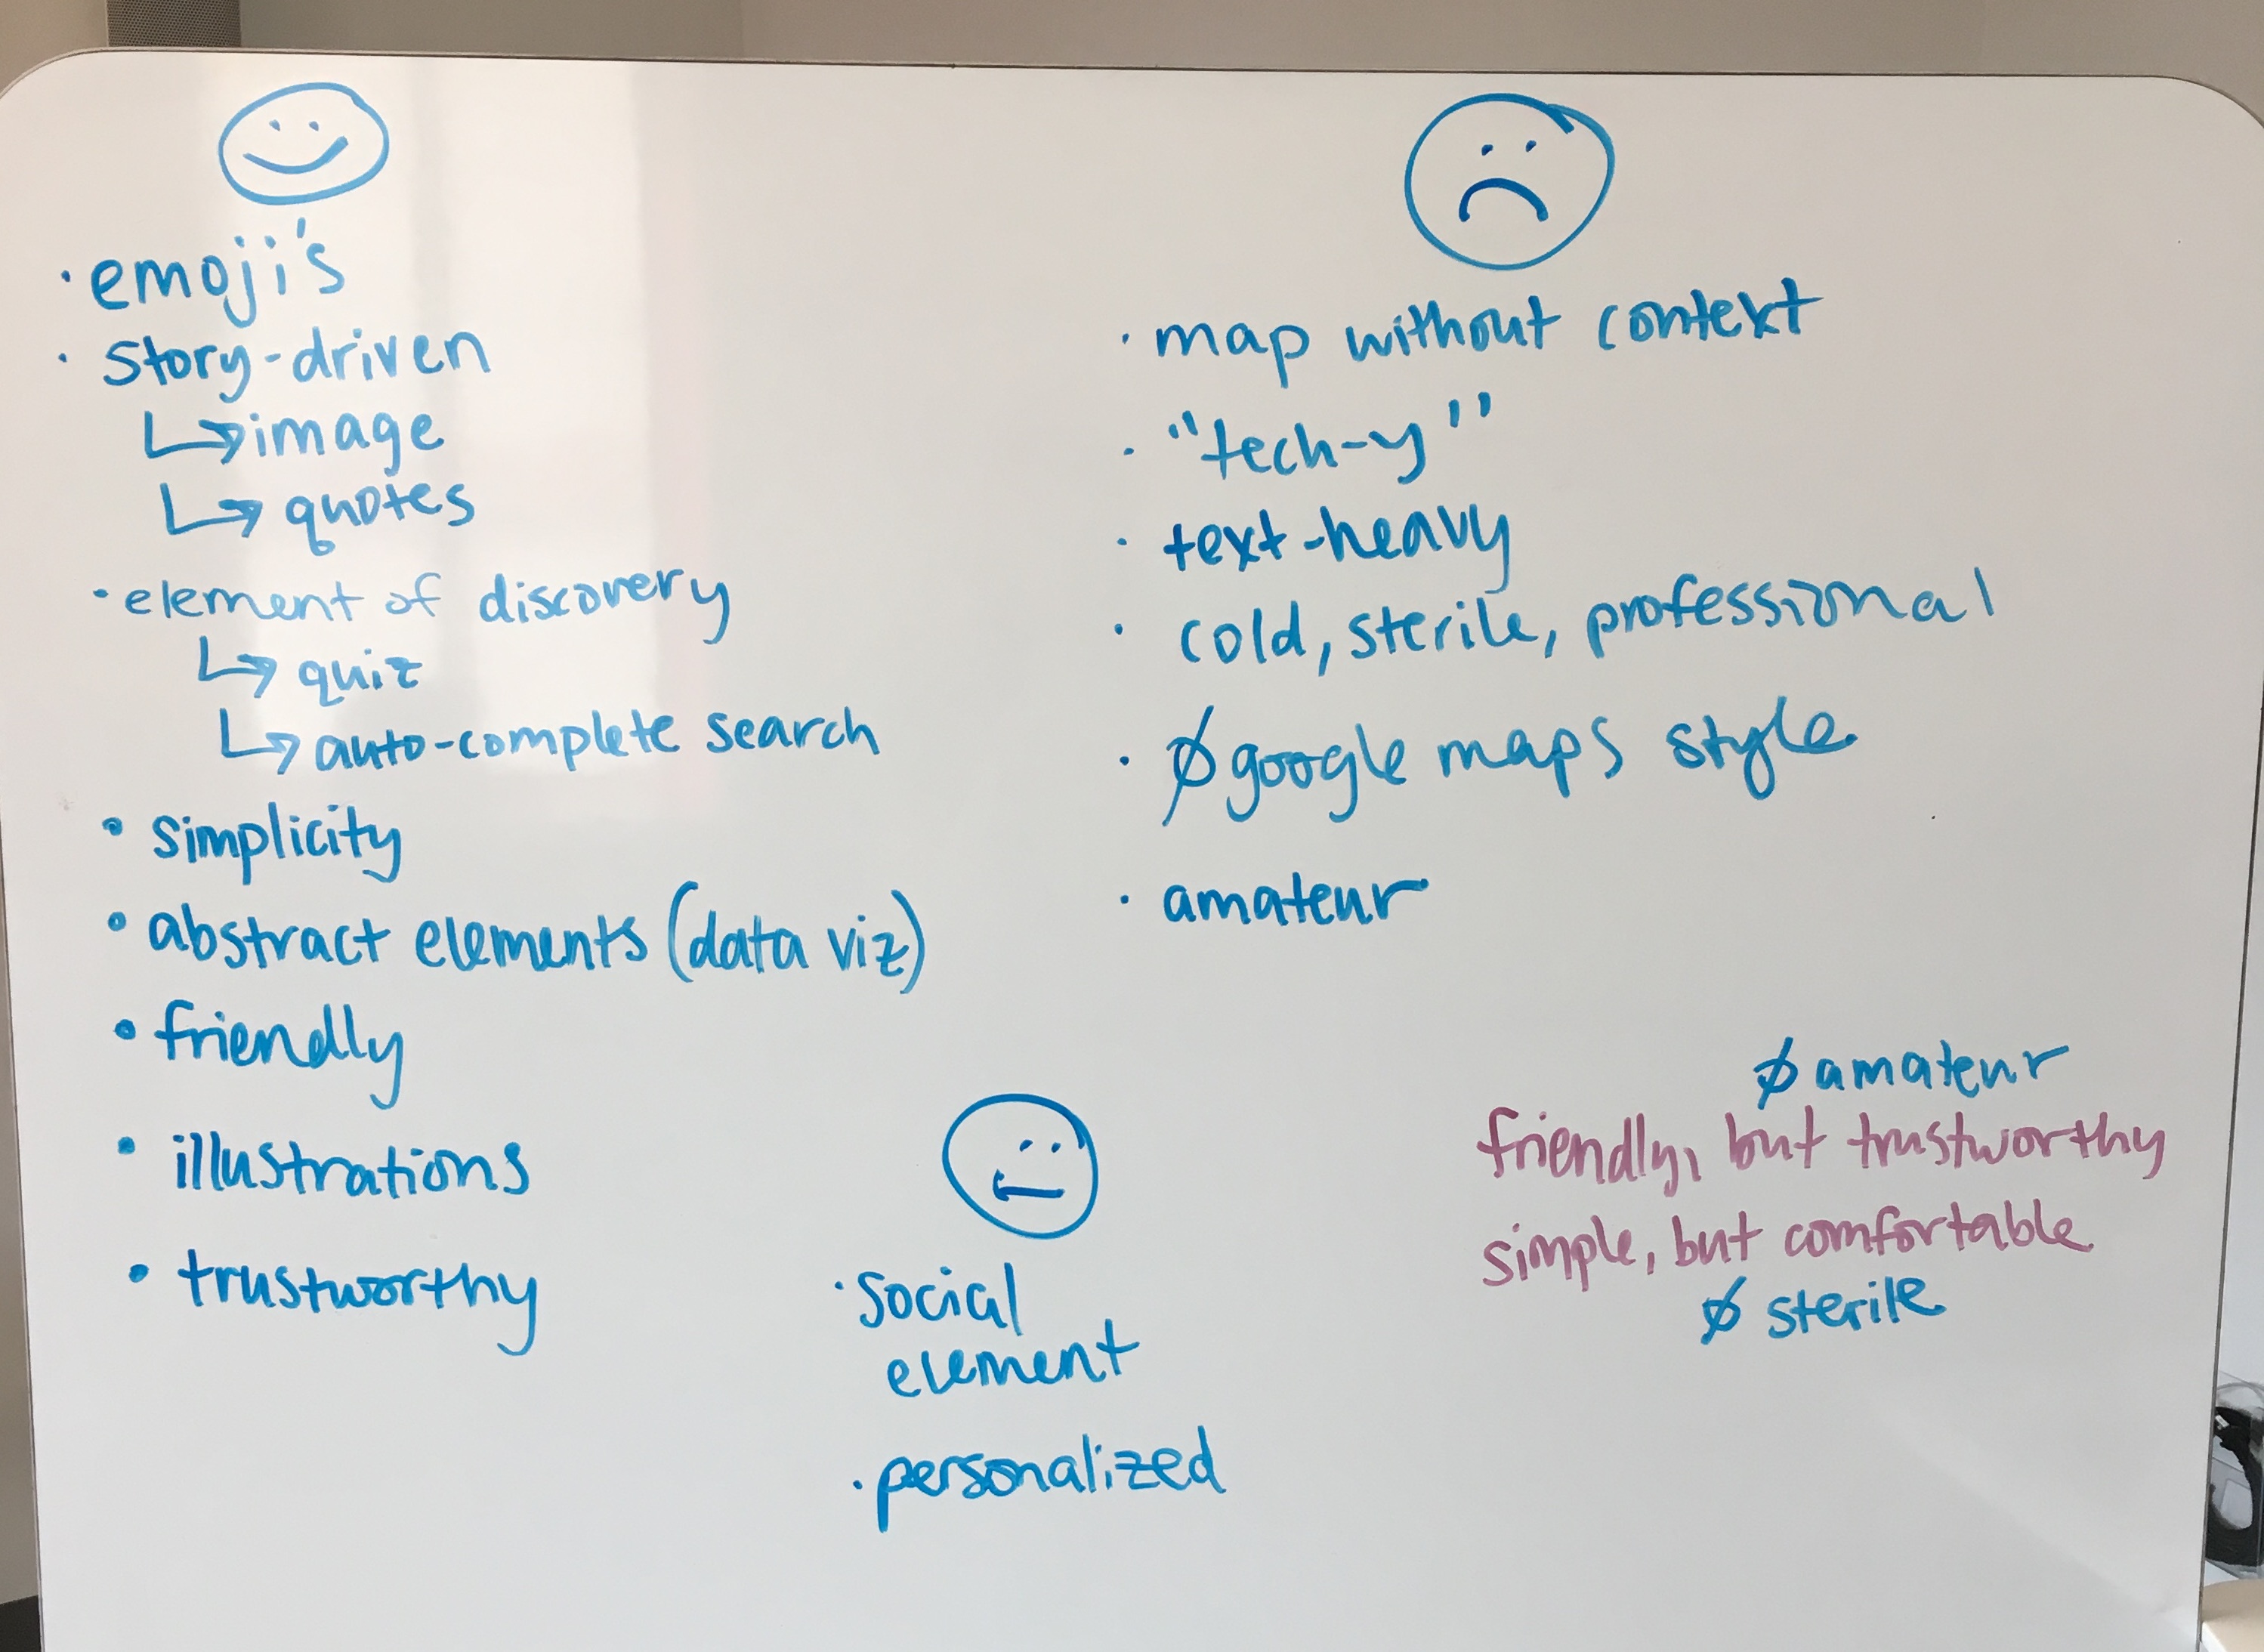 · emoji's
· story-driven
↳ image
↳ quotes
· element of discovery
↳ quiz
↳ auto-complete search
• simplicity
• abstract elements (data viz)
• friendly
• illustrations
• trustworthy
· map without context
· "tech-y"
· text-heavy
· cold, sterile, professional
· ∅ google maps style
· amateur
· social
element
· personalized
∅ amateur
friendly, but trustworthy
simple, but comfortable
∅ sterile